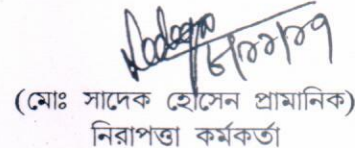 (মোঃ সাদেক হোসেন প্রামানিক)
নিরাপত্তা কর্মকর্তা